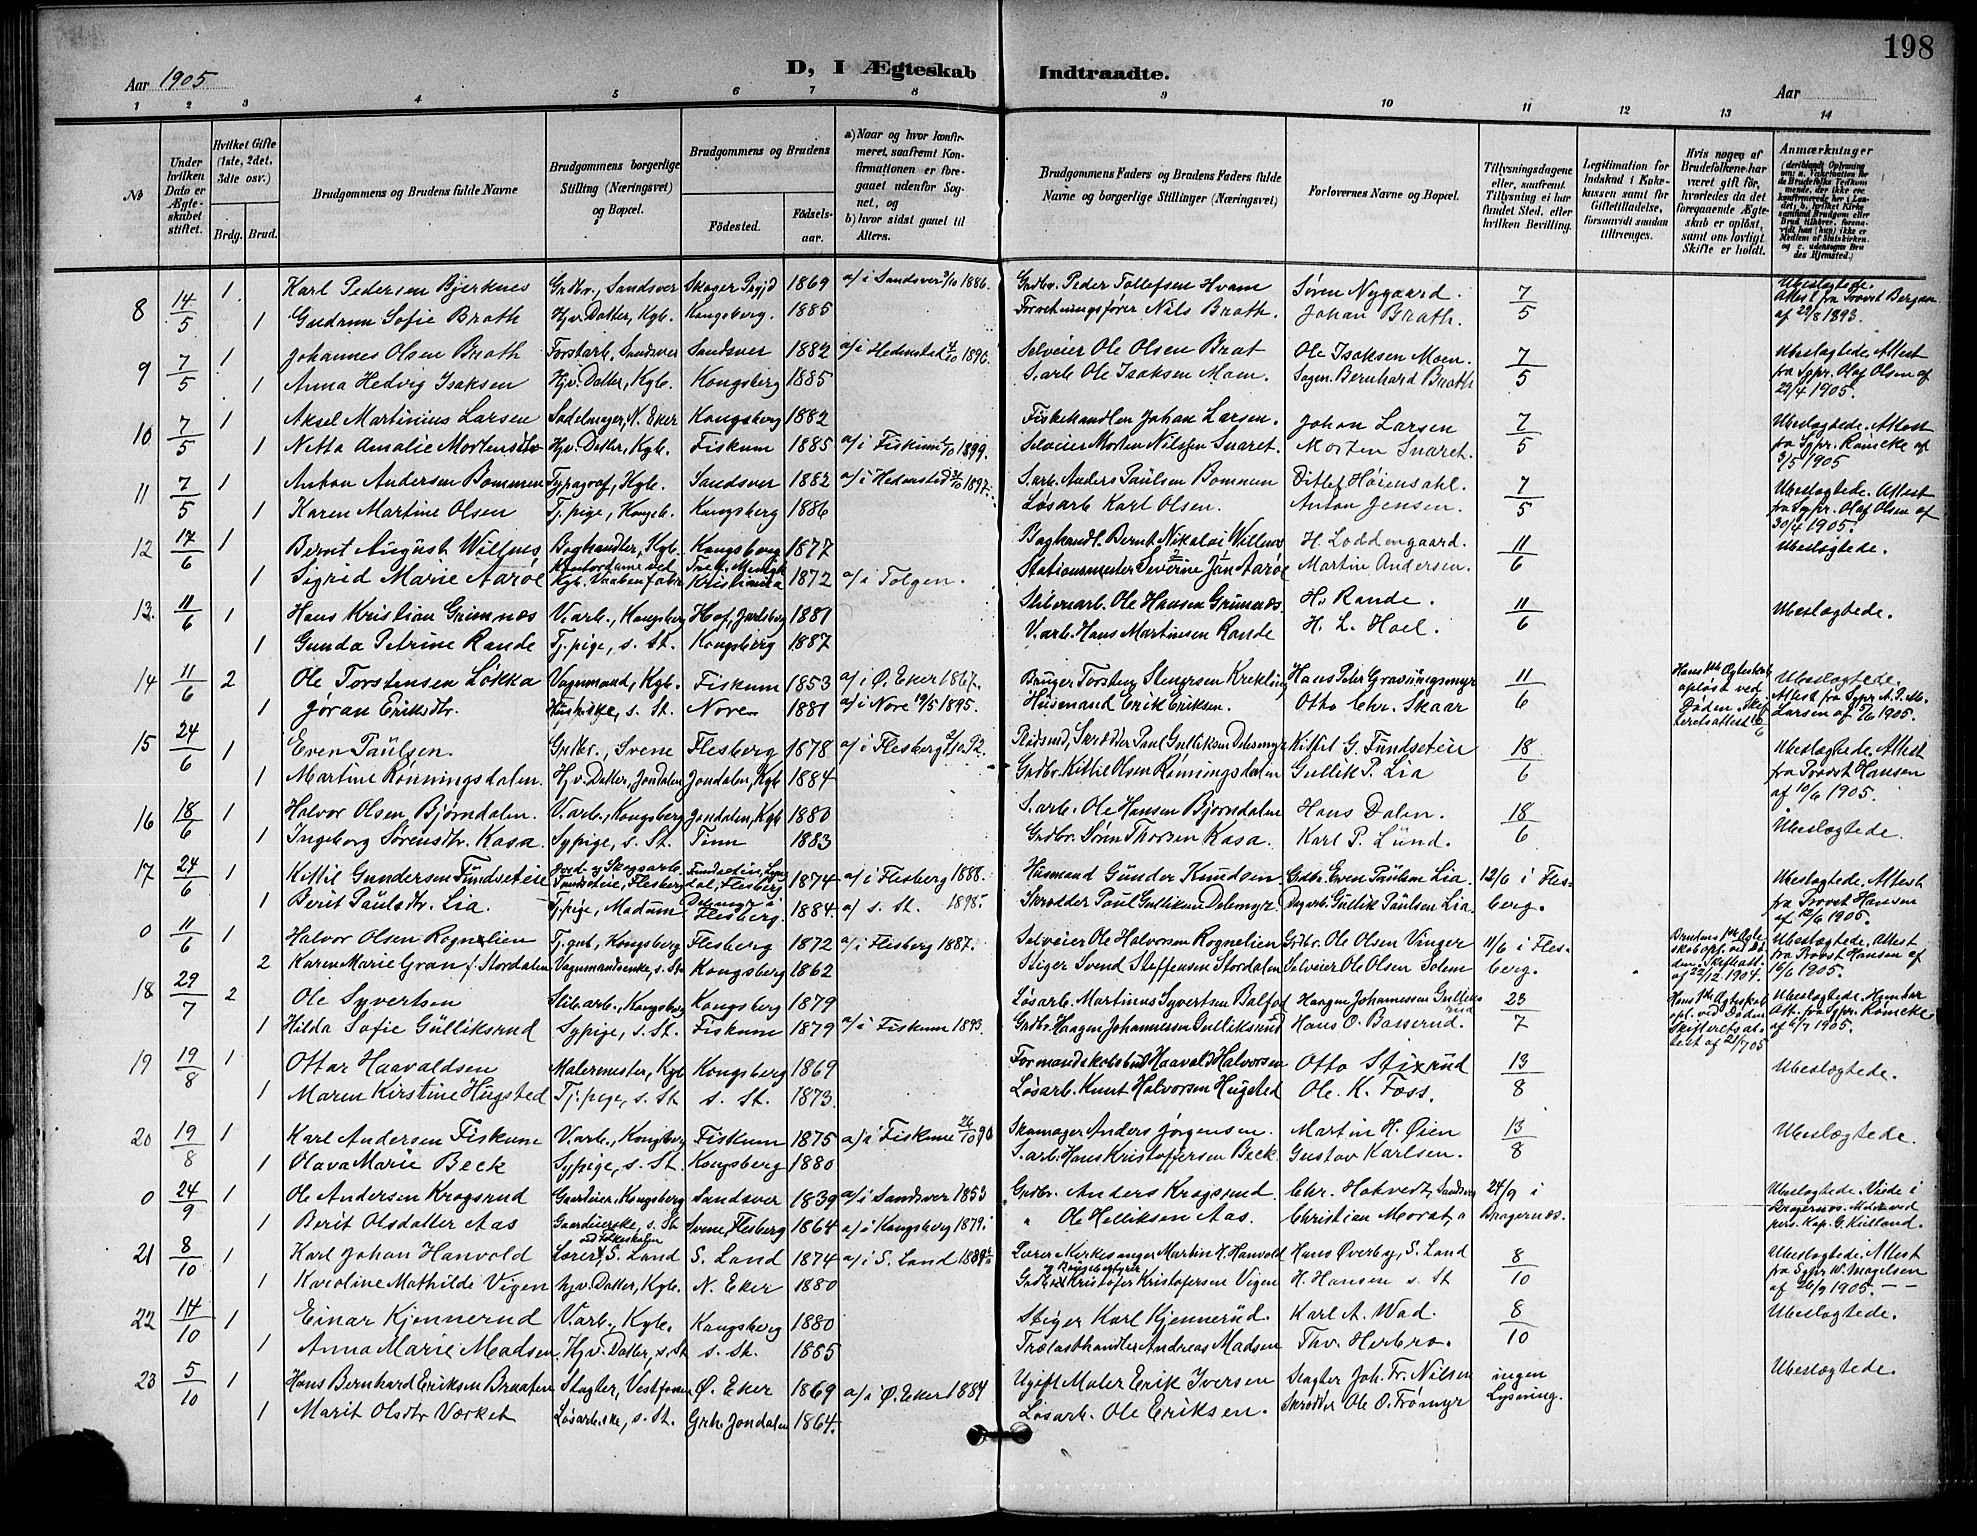 198
D, I Ægteskab Indtraadte.
Aar 1905. Aar
1 2 3 4 5 6 7 8 9 10 11 12 13 14
No
Under hvilken Dato er Ægteskabet stiftet.
Hvilket Gifte (1ste, 2det, 3die osv.)
Brdg. Brud.
Brudgommens og Brudens fulde Navne
Brudgommens borgerlige Stilling (Næringsvei) og Bopæl.
Brudgommens og Brudens
Fødested.
Fødselsaar.
a) Naar og hvor konfirmeret, saafremt Konfirmationen er foregaaet udenfor Sognet, og
b) hvor sidst gaaet til Alters.
Brudgommens Faders og Brudens Faders fulde Navne og borgerlige Stillinger (Næringsvei)
Forlovernes Navne og Bopæl.
Tillysningsdagene eller, saafremt Tillysning ei har fundet Sted, efter hvilken Bevilling.
Legitimation for Indskud i Enkekassen samt for Giftetilladelse, forsaavidt saadan tiltrænges.
Hvis nogen af Brudefolkene har været gift før, hvorledes da det foregaaende Ægteskab er opløst, samt om lovligt Skifte er holdt.
Anmærkninger
8 14/5 1 Karl Pedersen Bjerknes Grdbr., Sandsver Skoger Pgjd 1869 a/ i Sandsver 3/10 1886. Grdbr. Peder Tollefsen Hvam Søren Nygaard. 7/5 Ubeslægtede. Attest fra Provst Bergan af 29/8 1893.
1 Gudrun Sofie Brath Hjv. Datter, Kgb. Kongsberg. 1885 Forretningsfører Nils Brath. Johan Brath.
9 7/5 1 Johannes Olsen Brath Forstarb., Sandsver Sandsver 1882 a/ i Hedenstad 4/10 1896. Selveier Ole Olsen Brat Ole Isaksen Moen. 7/5 Ubeslægtede. Attest fra Sgpr. Olaf Olsen af 29/4 1905.
1 Anna Hedvig Isaksen Hjv. Datter, Kgb. Kongsberg 1885 S.arb. Ole Isaksen Moen. Sagm. Bernhard Brath
10 7/5 1 Aksel Martinius Larsen Sadelmager, N. Eker Kongsberg 1882 Fiskehandler Johan Larsen. Johan Larsen 7/5 Ubeslægtede. Attest fra Sgpr. Røincke af 3/5 1905
1 Netta Amalie Mortensdtr Hjv. Datter, Kgb. Fiskum 1885 a/ i Fiskum 1/10 1899. Selveier Morten Nilsen Svaret. Morten Svaret.
11 7/5 1 Anton Andersen Bommen Typograf, Kgb. Sandsver 1882 a/ i Hedenstad 3/10 1897. S.arb. Anders Paulsen Bommen Ditlef Høiensahl. 7/5 Ubeslægtede. Attest fra Sgpr. Olaf Olsen af 30/4 1905.
1 Karen Martine Olsen Tj.pige, Kongsb. Kongsberg 1886 Løsarb. Karl Olsen. Anton Jensen.
12 17/6 1 Bernt August Willnes Boghandler, Kgb. Kongsberg 1877 Boghandl. Bernt Nikolai Willnes H. Loddengaard. 11/6 Ubeslægtede.
1 Sigrid Marie Aarøe Kontordame ved Kgb. Vaabenfabr. Kristiania 1872 a/ i Tolgen. Stationsmester Severine Jan Aarøe Martin Andersen.
13. 11/6 1 Hans Kristian Grimnæs V.arb., Kongsberg Hof, Jarlsberg 1881 Stibrarb. Ole Hansen Grimnæs. H. Rande. 11/6 Ubeslægtede.
1 Gunda Petrine Rande Tj.pige, s. St. Kongsberg 1887 V.arb. Hans Martinsen Rande H. L. Hoel.
14 11/6 2 Ole Torstensen Løkka Vognmand, Kgb. Fiskum 1853 a/ i Ø. Eker 1867. Bruger Torsten Stenersen Krekling Hans Peter Gravningsmyr 11/6 Hans 1ste Ægteskab opløst ved Døden. Ubeslægtede. Attest fra Sgpr. A. P. M. Larsen af 5/6 1905.
1 Jøran Eriksdtr. s. St. Nore 1881 a/ i Nore 19/5 1895. Husmand Erik Eriksen. Otto Chr. Skaar
15 24/6 1 Even Paulsen. Grdbr., Svene Flesberg 1878 a/ i Flesberg 2/10 92. Skrædder Paul Gulliksen Delemyr Kittil G. Fundseteie 18/6 Ubeslægtede. Attest fra Provst Hansen af 10/6 1905.
1 Martine Rønningsdalen. Hjv. Datter, Jondalen Jondalen, Kgb 1884 Grdbr. Kittil Olsen Rønningsdalen Gullik P. Lia
16 18/6 1 Halvor Olsen Bjørndalen. V.arb., Kongsberg Jondalen, Kgb 1880 S.arb. Ole Hansen Bjørndalen Hans Dalen. 18/6 Ubeslægtede.
1 Ingeborg Sørensdtr. Kasa. Sypige, s. St. Tinn 1883 Grdbr. Søren Thorsen Kasa. Karl P. Lund.
17 24/6 1 Kittil Gundersen Fundseteie Jord- og Skogsarb. Fundseteie, Flesberg Fundseteie, Lyngdal, Flesberg 1874 a/ i Flesberg 1888. Husmand Gunder Knudsen. Grdbr. Even Paulsen Lia. 12/6 i Flesberg. Ubeslægtede. Attest fra Provst Hansen af 12/6 1905.
1 Berit Paulsdtr. Lia. Tj.pige, Modum Delemyr i Flesberg. 1884 a/ s. St. 1898. Skrædder Paul Gulliksen Delemyr. Dagarb. Gullik Paulsen Lia.
0 11/6 1 Halvor Olsen Rognelien Tj.gut, Kongsberg Flesberg 1872 a/ i Flesberg 1887. Selveier Ole Halvorsen Rognelien Grdbr. Ole Olsen Vinger 11/6 i Flesberg. Brudens 1ste Ægteskab opl. ved Døden. Skifteatt. af 22/12 1904. Ubeslægtede. Attest fra Provst Hansen af 16/6 1905.
2 Karen Marie Gran f. Stordalen Vognmandsenke, s. St. Kongsberg 1862 Stiger Svend Steffensen Stordalen Selveier Ole Olsen Solem
18 29/7 2 Ole Syvertsen Stibarb., Kongsberg Kongsberg 1879 Løsarb. Martinus Syvertsen Balfod Haagen Johannessen Gulliksrud 23/7 Hans 1ste Ægteskab opl. ved Døden Skifteretsattest af 21/7 05 Ubeslægtede. Hun har Att. fra Sgpr. Røincke af 6/7 1905.
1 Hilda Sofie Gulliksrud Sypige, s. St. Fiskum 1879 a/ i Fiskum 1893. Grdbr. Haagen Johannessen Gulliksrud Hans O. Basserud.
19 19/8 1 Ottar Haavaldsen Malermester, Kgb Kongsberg 1869 Formandskabsbud Haavald Halvorsen Otto Stixrud 13/8 Ubeslægtede.
1 Maren Kirstine Hugsted Tj.pige, s. St. s. St. 1873. Løsarb. Knut Halvorsen Hugsted Ole. K. Foss.
20 19/8 1 Karl Andersen Fiskum V.arb., Kongsberg Fiskum 1875 a/ i Fiskum 26/10 90 Skomager Anders Jørgensen. Martin H. Øien 13/8 Ubeslægtede.
1 Olava Marie Beck Sypige, s. St. Kongsberg 1880 S.arb. Hans Kristoffersen Beck. Gustav Karlsen.
0 24/9 1 Ole Andersen Krogsrud Gaardeier, Kongsberg Sandsver 1839 a/ i Sandsver 1853 Grdbr. Anders Krogsrud. Chr. Hotvedt, Sandsver 24/9 i Bragernæs. Ubeslægtede. Viede i Bragernæs Menighed pers. Kap. G. Kielland.
1 Berit Olsdatter Aas Gaardeierske, s. St Svene, Flesberg 1864 a/ i Kongsberg 1879. " Ole Helliksen Aas. Christian Morat, "
21 8/10 1 Karl Johan Hanvold Lærer ved Folkeskolen S. Land S. Land 1874 a/ i S. Land 1889 Lærer & Kirkesanger Martin H. Hanvold Hans Øverby, S. Land 8/10 Ubeslægtede. Attest fra Sgpr W. Magelsen af 26/9 1905.
1 Karoline Mathilde Vigen Hjv. Datter, Kgb. N. Eker 1880 Kristofer Kristofersen Vigen H. Hansen s. St
22 14/10 1 Einar Kjennerud V.arb., Kgb. Kongsberg 1880 Stiger Karl Kjennerud. Karl A. Wad. 8/10 Ubeslægtede.
1 Anna Marie Madsen. Hjv. Datter, s. St s. St. 1885 Trælasthandler Andreas Madsen Thv. Herbro.
23 5/10 1 Hans Bernhard Eriksen Braaten Slagter, Vestfossen Ø. Eker 1869 a/ i Ø. Eker 1884 Ugift Maler Erik Iversen Slagter Joh. Fr. Nilsen ingen Lysning. Ubeslægtede.
1 Marit Olsdtr Værket Løsarb.ske, s. St. Grh. Jondalen 1864. Løsarb. Ole Eriksen. Skrædder Ole O. Frømyr